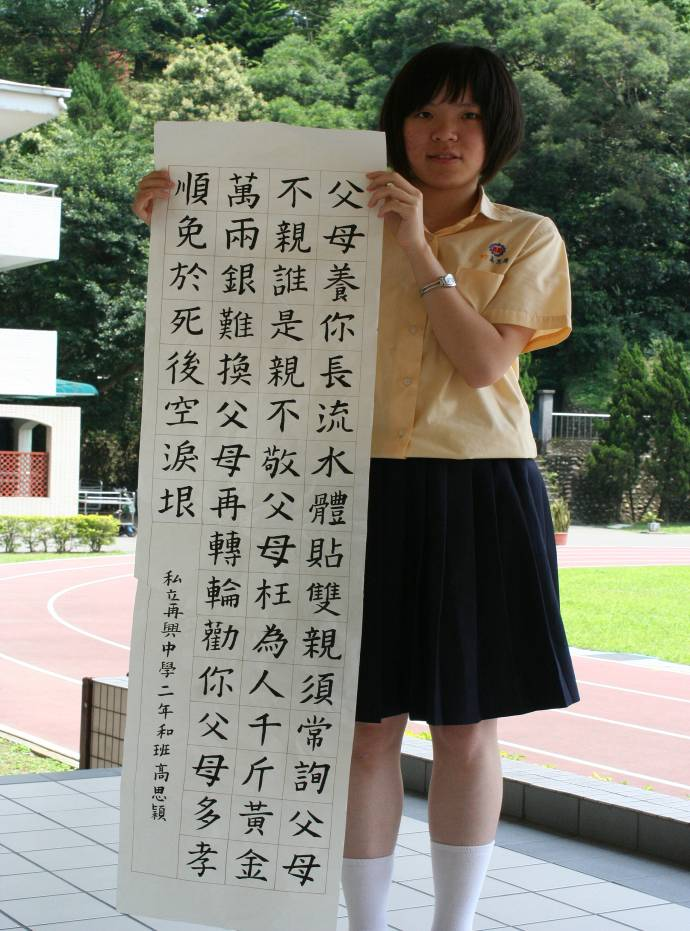 父母養你長流水體貼雙親須常詢父母
不親誰是親不敬父母枉為人千斤黃金
萬兩銀難換父母再轉輪勸你父母多孝
順免於死後空淚垠
私立再興中學二年和班高思穎